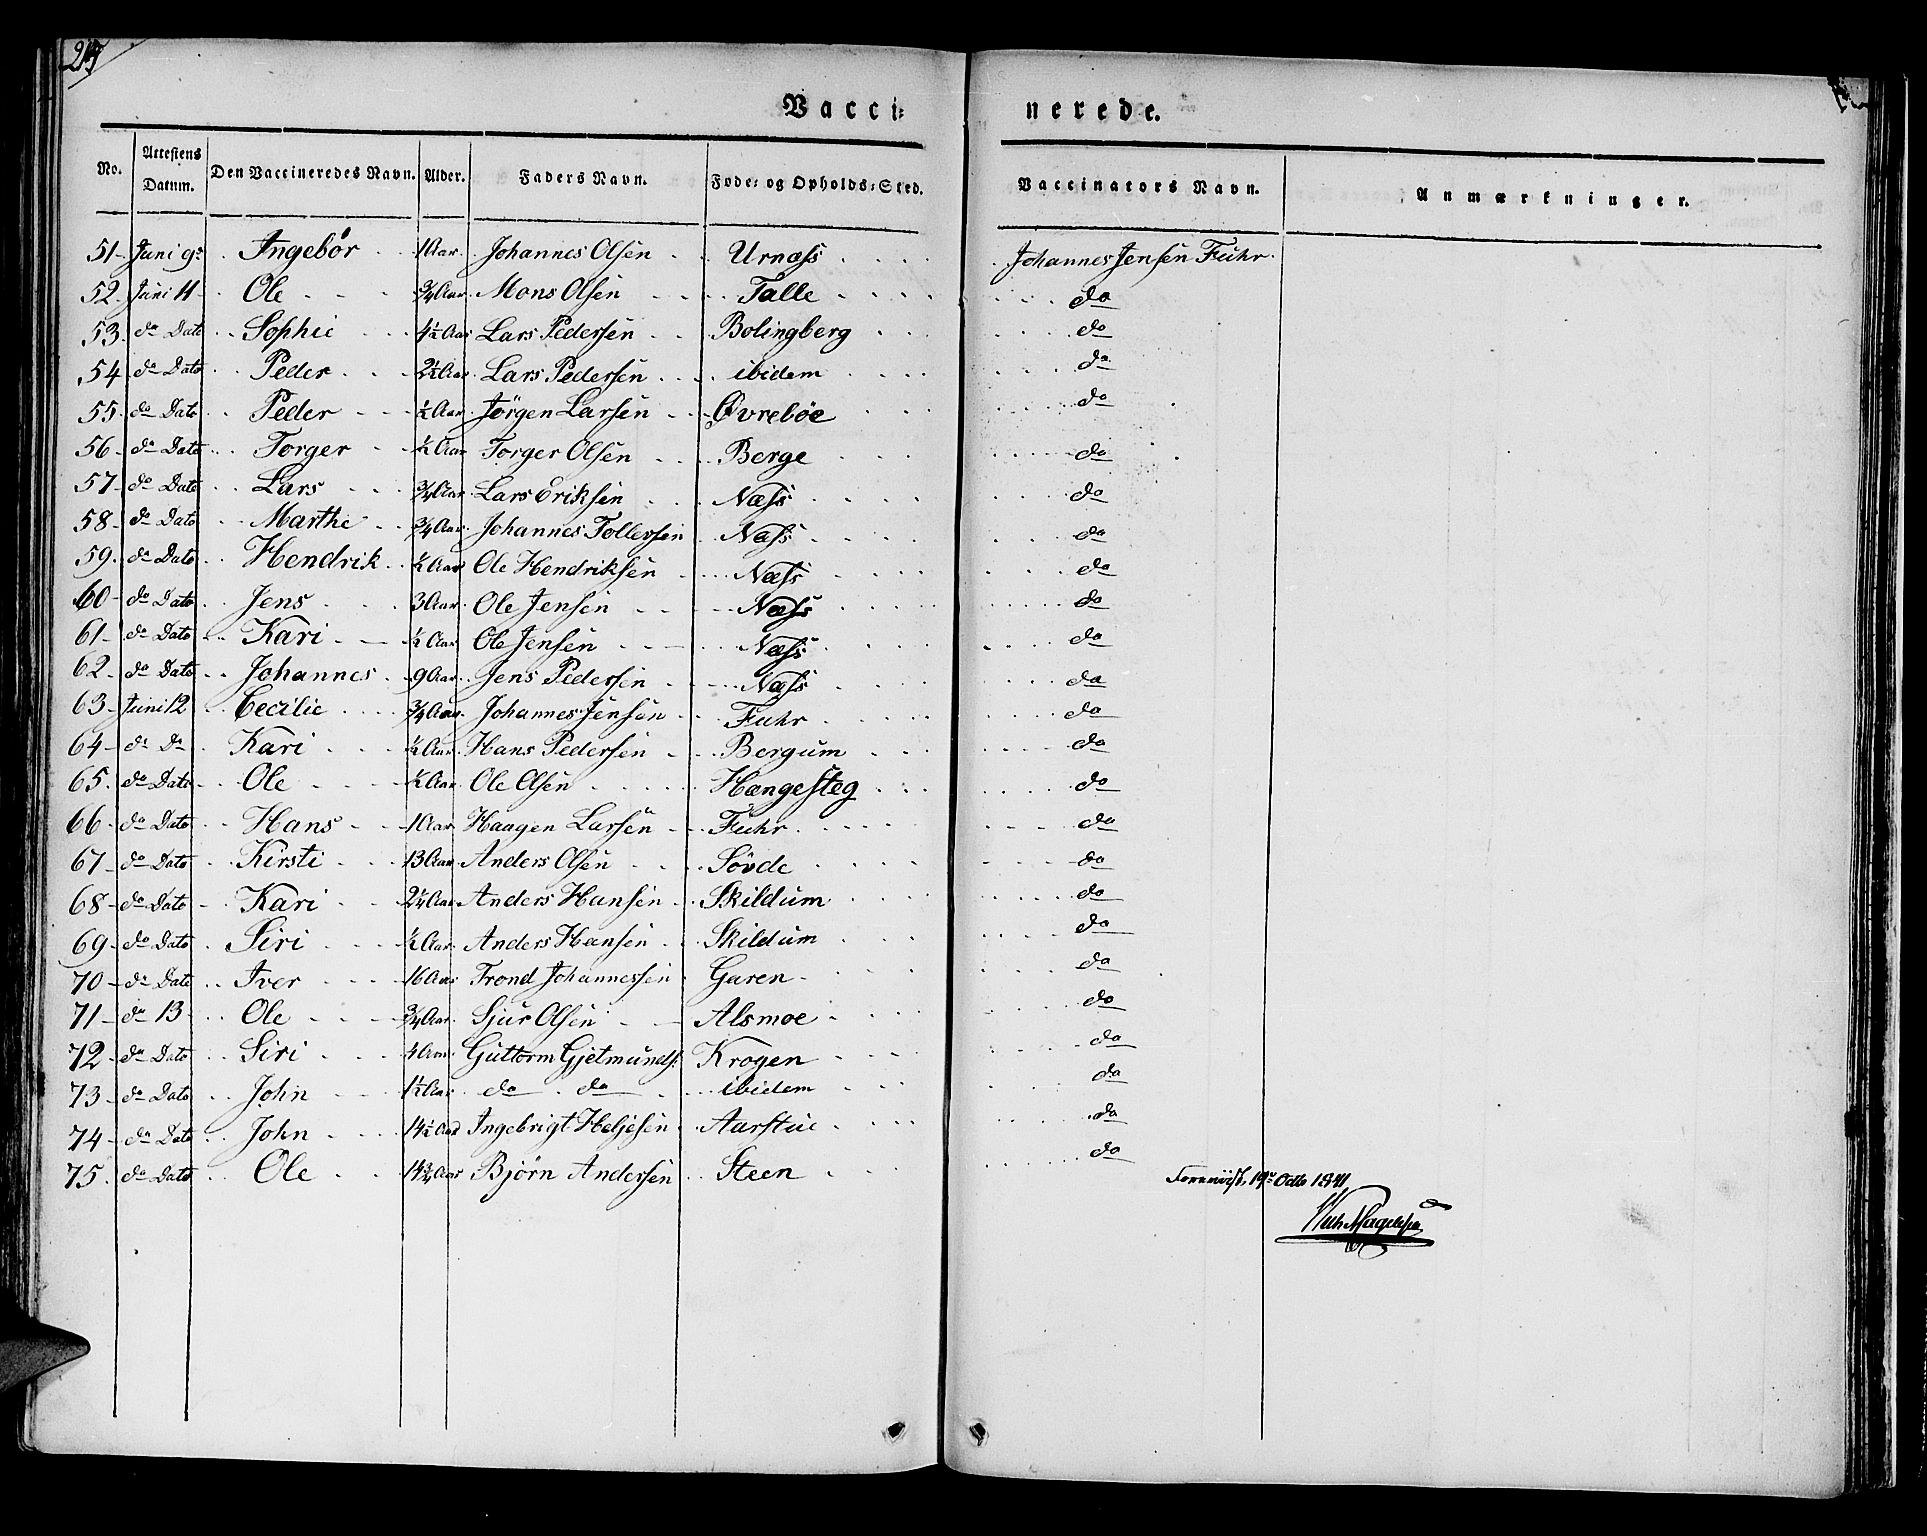 Vacci: nerede.
No. Attestens Datum. Den Vaccineredes Navn. Alder. Faders Navn. Føde: og Opholds:Sted. Vaccinators Navn. Anmærkninger.
51 Juni 9de Ingebør 1 Aar Johannes Olsen Urnæss Johannes Jensen Fuhr
52 Juni 11 Ole 3/4 Aar Mons Olsen Talle do
53 do Dato Sophie 4 1/2 Aar Lars Pedersen Bolingberg do
54 do Dato Peder Lars Pedersen ibidem do
55 do Dato Peder 1/2 Aar Jørgen Larsen Øvrebøe do
56 do Dato Torger Torger Olsen Berge do
57 do Dato Lars 3/4 Aar Lars Eriksen Næss do
58 do Dato Marthe 3/4 Aar Johannes Tollersen Næss do
59 do Dato Hendrik Ole Hendriksen Næss do
60 do Dato Jens 3 Aar Ole Jensen Næss do
61 do Dato Kari 1/2 Aar Ole Jensen Næss do
62 do Dato Johannes 9 Aar Jens Pedersen Næss do
63 Juni 12 Cecilie 3/4 Aar Johannes Jensen Fuhr do
64 do Do Kari Hans Pedersen Bergum do
65 do Dato Ole Ole Olsen Hængesteg do
66 do Dato Hans 1 Aar Haagen Larsen Fuhr do
67 do Dato Kirsti 13 Aar Anders Olsen Søvde do
68 do Dato Kari 2 1/4 Aar Anders Hansen Skildum do
69 do Dato Siri Anders Hansen Skildum do
70 do Dato Iver 16 Aar Trond Johannessen Garen do
71 do 13 Ole 3/4 Aar Sjur Olsen Alsmoe do
72 do Dato Siri Guttorm Gjetmunds: Krogen do
73 do Dato John 1 1/2 Aar do do ibidem do
74 do Dato John 14 1/2 Aar Ingebrigt Heljesen Aarstue do
75 do Dato Ole 14 3/4 Aar Bjørn Andersen Steen do
Foreviist, 19de Octb 1841